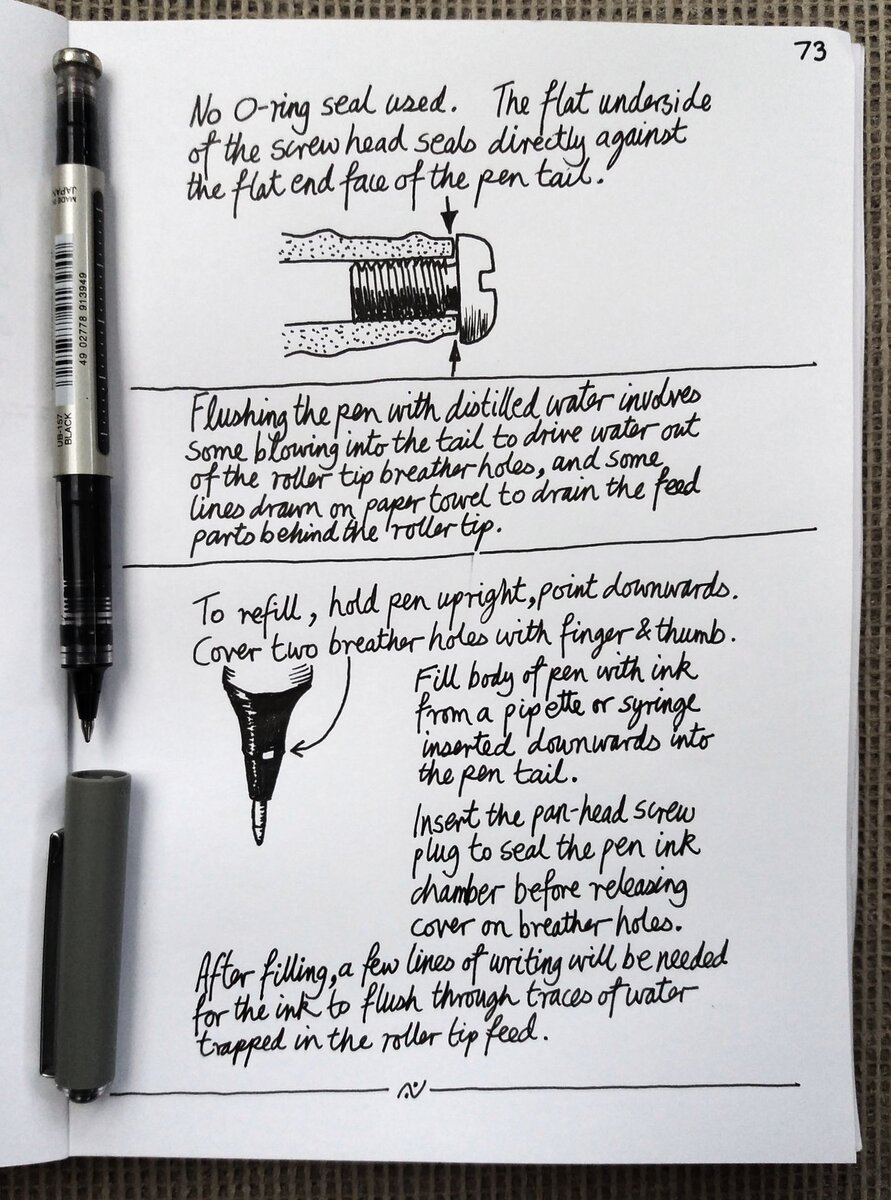 73
No O-ring seal used. The flat underside
of the screw head seals directly against
the flat end face of the pen tail.
Flushing the pen with distilled water involves
some blowing into the tail to drive water out
of the roller tip breather holes, and some
lines drawn on paper towel to drain the feed
parts behind the roller tip.
To refill, hold pen upright, point downwards.
Cover two breather holes with finger & thumb.
Fill body of pen with ink
from a pipette or syringe
inserted downwards into
the pen tail.
Insert the pan-head screw
plug to seal the pen ink
chamber before releasing
cover on breather holes.
After filling, a few lines of writing will be needed
for the ink to flush through traces of water
trapped in the roller tip feed.
MADE IN
JAPAN
49 02778 913949
UB-157
BLACK